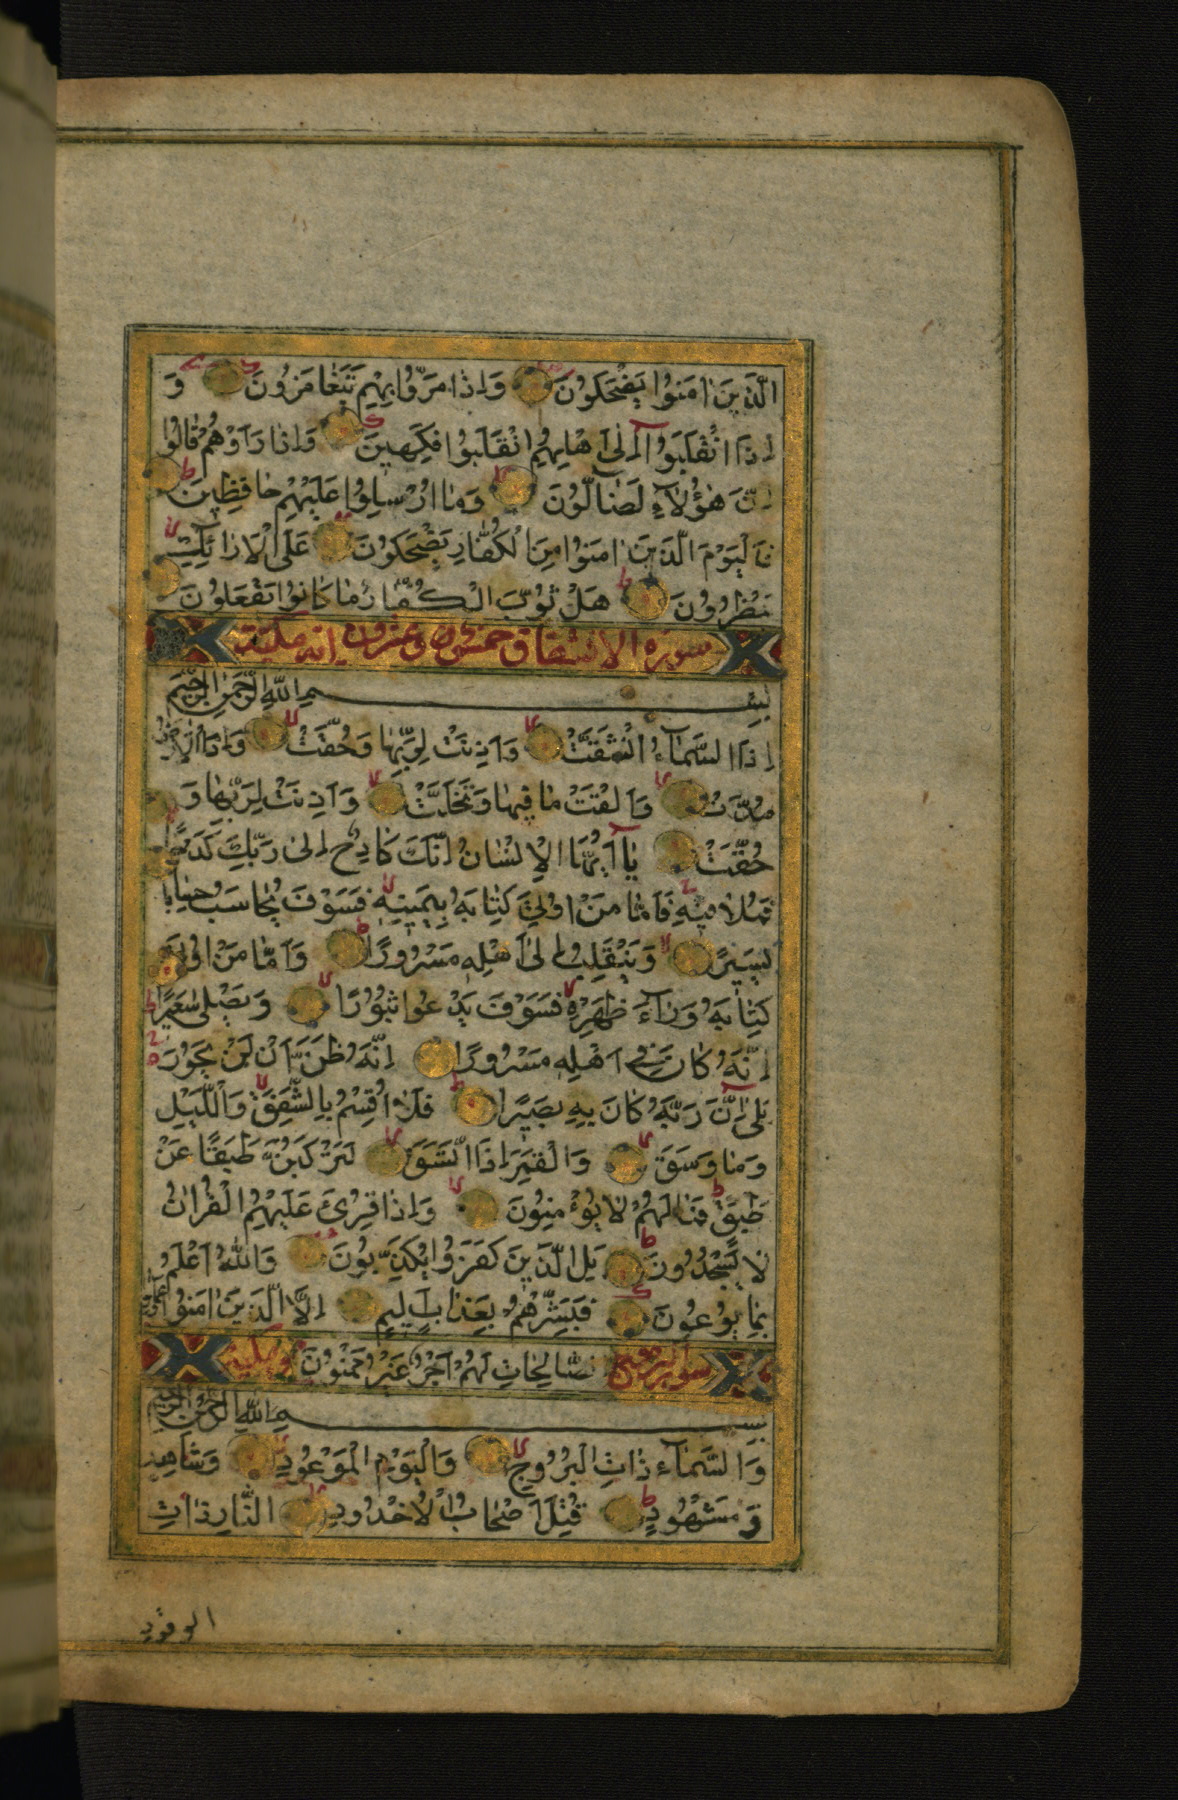 الَّذِينَ اٰمَنُوا يَضْحَكُونَ وَاِذَا مَرُّوا بِهِمْ يَتَغَامَزُونَ وَ
اِذَا انْقَلَبُوا اِلٰى اَهْلِهِمُ انْقَلَبُوا فَكِهِينَ وَاِذَا رَاَوْهُمْ قَالُوا
اِنَّ هٰؤُلَاۤءِ لَضَاۤلُّونَ وَمَا اُرْسِلُوا عَلَيْهِمْ حَافِظِينَ
فَالْيَوْمَ الَّذِينَ اٰمَنُوا مِنَ الْكُفَّارِ يَضْحَكُونَ عَلَى الْاَرَائِكِ
يَنْظُرُونَ هَلْ ثُوِّبَ الْكُفَّارُ مَا كَانُوا يَفْعَلُونَ
سورة الانشقاق خمس وعشرون اية مكية
بِسْمِ اللّٰهِ الرَّحْمٰنِ الرَّحِيمِ
اِذَا السَّمَاۤءُ انْشَقَّتْ وَاَذِنَتْ لِرَبِّهَا وَحُقَّتْ وَاِذَا الْاَرْضُ
مُدَّتْ وَاَلْقَتْ مَا فِيهَا وَتَخَلَّتْ وَاَذِنَتْ لِرَبِّهَا وَ
حُقَّتْ يَاۤ اَيُّهَا الْاِنْسَانُ اِنَّكَ كَادِحٌ اِلٰى رَبِّكَ كَدْحًا
فَمُلَاقِيهِ فَاَمَّا مَنْ اُوتِيَ كِتَابَهُ بِيَمِينِهِ فَسَوْفَ يُحَاسَبُ حِسَابًا
يَسِيرًا وَيَنْقَلِبُ اِلٰى اَهْلِهِ مَسْرُورًا وَاَمَّا مَنْ اُوتِيَ
كِتَابَهُ وَرَاۤءَ ظَهْرِهِ فَسَوْفَ يَدْعُوا ثُبُورًا وَيَصْلٰى سَعِيرًا
اِنَّهُ كَانَ فِي اَهْلِهِ مَسْرُورًا اِنَّهُ ظَنَّ اَنْ لَنْ يَحُورَ
بَلٰى اِنَّ رَبَّهُ كَانَ بِهِ بَصِيرًا فَلَا اُقْسِمُ بِالشَّفَقِ وَالَّيْلِ
وَمَا وَسَقَ وَالْقَمَرِ اِذَا اتَّسَقَ لَتَرْكَبُنَّ طَبَقًا عَنْ
طَبَقٍ فَمَا لَهُمْ لَا يُؤْمِنُونَ وَاِذَا قُرِئَ عَلَيْهِمُ الْقُرْاٰنُ
لَا يَسْجُدُونَ بَلِ الَّذِينَ كَفَرُوا يُكَذِّبُونَ وَاللّٰهُ اَعْلَمُ
بِمَا يُوعُونَ فَبَشِّرْهُمْ بِعَذَابٍ اَلِيمٍ اِلَّا الَّذِينَ اٰمَنُوا وَعَمِلُوا
سورة البروج الصَّالِحَاتِ لَهُمْ اَجْرٌ غَيْرُ مَمْنُونٍ مكية
بِسْمِ اللّٰهِ الرَّحْمٰنِ الرَّحِيمِ
وَالسَّمَاۤءِ ذَاتِ الْبُرُوجِ وَالْيَوْمِ الْمَوْعُودِ وَشَاهِدٍ
وَمَشْهُودٍ قُتِلَ اَصْحَابُ الْاُخْدُودِ النَّارِ ذَاتِ
الوقود